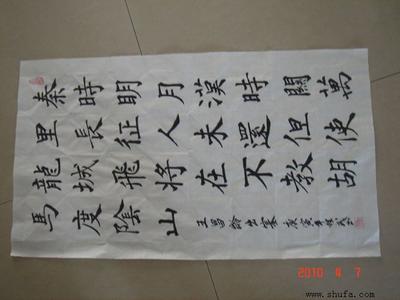 秦時明月漢時關萬
里長征人未還但使
龍城飛將在不教胡
馬度陰山
王昌齡出塞 庚寅年
2010 4 7
www.shufa.com